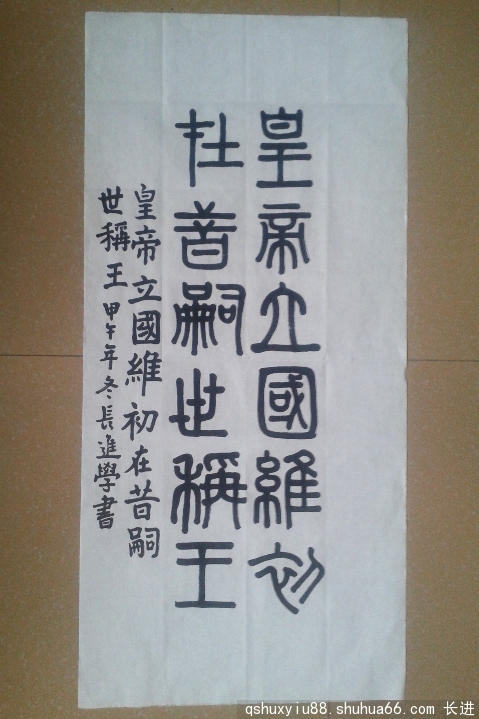 皇帝立國維初
在昔嗣世稱王
皇帝立國維初在昔嗣
世稱王 甲午年冬長進學書
qshuxyiu88.shuhua66.com 长进